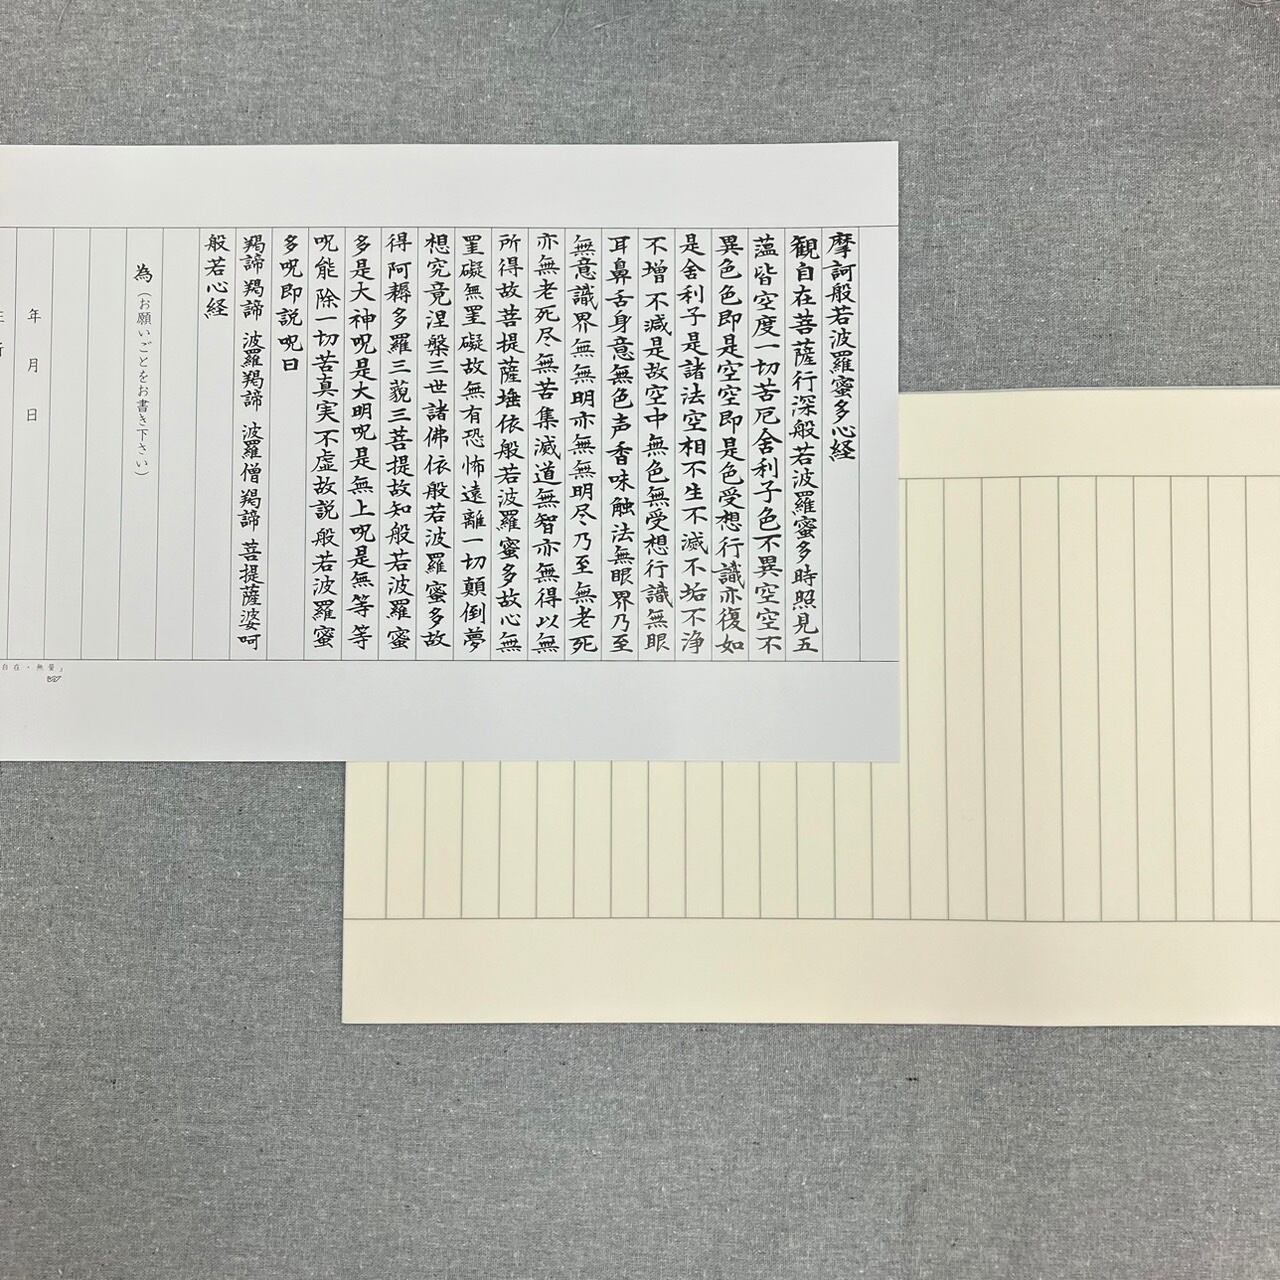 摩訶般若波羅蜜多心経
観自在菩薩行深般若波羅蜜多時照見五
薀皆空度一切苦厄舍利子色不異空空不
異色色即是空空即是色受想行識亦復如
是舍利子是諸法空相不生不滅不垢不浄
不増不減是故空中無色無受想行識無眼
耳鼻舌身意無色声香味触法無眼界乃至
無意識界無無明亦無無明尽乃至無老死
亦無老死尽無苦集滅道無智亦無得以無
所得故菩提薩埵依般若波羅蜜多故心無
罣礙無罣礙故無有恐怖遠離一切顛倒夢
想究竟涅槃三世諸佛依般若波羅蜜多故
得阿耨多羅三藐三菩提故知般若波羅蜜
多是大神呪是大明呪是無上呪是無等等
呪能除一切苦真実不虚故説般若波羅蜜
多呪即説呪曰
羯諦 羯諦 波羅羯諦 波羅僧羯諦 菩提薩婆呵
般若心経
為（お願いごとをお書き下さい）
年 月 日
自在・無量」